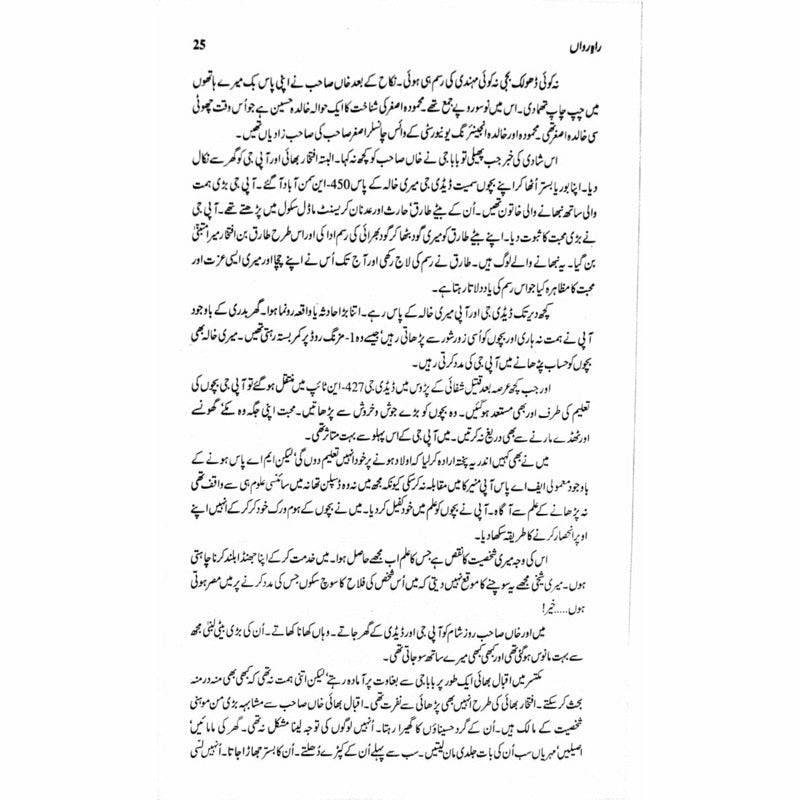 راہ رواں
25
نہ کوئی ڈھولک بجی نہ کوئی مہندی کی رسم ہی ہوئی۔ نکاح کے بعد خاں صاحب نے اپنی پاس بک میرے ہاتھوں
میں چپ چاپ تھما دی۔ اس میں نو سو روپے جمع تھے۔ محمودہ اصغر کی شناخت کا ایک حوالہ خالدہ حسین ہے جو اُس وقت چھوٹی
سی خالدہ اصغر تھی۔ محمودہ اور خالدہ انجینئرنگ یونیورسٹی کے وائس چانسلر اصغر صاحب کی صاحب زادیاں تھیں۔
اس شادی کی خبر جب پھیلی تو بابا جی نے خاں صاحب کو کچھ نہ کہا۔ البتہ افتخار بھائی اور آپی جی کو گھر سے نکال
دیا۔ اپنا بوریا بستر اُٹھا کر اپنے بچوں سمیت ڈیڈی جی میری خالہ کے پاس 450-این سمن آباد آ گئے۔ آپی جی بڑی ہمت
والی ساتھ نبھانے والی خاتون تھیں۔ اُن کے بیٹے طارق، حارث اور عدنان کریسنٹ ماڈل سکول میں پڑھتے تھے۔ آپی جی
نے بڑی محبت کا ثبوت دیا۔ اپنے بیٹے طارق کو میری گود بٹھا کر گود بھرائی کی رسم ادا کی اور اس طرح طارق بن افتخار میرا متبنیٰ
بن گیا۔ یہ نبھانے والے لوگ ہیں۔ طارق نے رسم کی لاج رکھی اور آج تک اُس نے اپنے چچا اور میری ایسی عزت اور
محبت کا مظاہرہ کیا جو اس رسم کی یاد دلاتا رہتا ہے۔
کچھ دیر تک ڈیڈی جی اور آپی میری خالہ کے پاس رہے۔ اتنا بڑا حادثہ یا واقعہ رونما ہوا۔ گھر بدری کے باوجود
آپی نے ہمت نہ ہاری اور بچوں کو اُسی زور شور سے پڑھاتی رہیں' جیسے وہ 1-مزنگ روڈ پر کمربستہ رہتی تھیں۔ میری خالہ بھی
بچوں کو حساب پڑھانے میں آپی جی کی مدد کرتی رہیں۔
اور جب کچھ عرصہ بعد قتیل شفائی کے پڑوس میں ڈیڈی جی 427-این ٹائپ میں منتقل ہو گئے تو آپی جی بچوں کی
تعلیم کی طرف اور بھی مستعد ہو گئیں۔ وہ بچوں کو بڑے جوش و خروش سے پڑھاتیں۔ محبت اپنی جگہ وہ مکے' گھونسے
اور ٹھڈے مارنے سے بھی دریغ نہ کرتیں۔ میں آپی جی کے اس پہلو سے بہت متاثر تھی۔
میں نے بھی کہیں اندر یہ پختہ ارادہ کر لیا کہ اولاد ہونے پر خود انہیں تعلیم دوں گی' لیکن ایم اے پاس ہونے کے
باوجود معمولی ایف اے پاس آپی منیر کا میں مقابلہ نہ کر سکی کیونکہ مجھ میں نہ وہ ڈسپلن تھا نہ میں سائنسی علوم ہی سے واقف تھی
نہ پڑھانے کے علم سے آگاہ۔ آپی نے بچوں کو علم میں خود کفیل کر دیا۔ میں نے بچوں کے ہوم ورک خود کر کر کے انہیں اپنے
اوپر انحصار کرنے کا طریقہ سکھا دیا۔
اس کی وجہ میری شخصیت کا نقص ہے جس کا علم اب مجھے حاصل ہوا۔ میں خدمت کر کے اپنا جھنڈا بلند کرنا چاہتی
ہوں۔ میری شیخی مجھے یہ سوچنے کا موقع نہیں دیتی کہ میں اُس شخص کی فلاح کا سوچ سکوں جس کی مدد کرنے پر میں مصر ہوتی
ہوں..... خیر!
میں اور خاں صاحب روز شام کو آپی جی اور ڈیڈی کے گھر جاتے۔ وہاں کھانا کھاتے۔ اُن کی بڑی بیٹی لبنیٰ مجھ
سے بہت مانوس ہو گئی تھی اور کبھی کبھی میرے ساتھ سو جاتی تھی۔
مکتسر میں اقبال بھائی ایک طور پر بابا جی سے بغاوت پر آمادہ رہتے' لیکن اتنی ہمت نہ تھی کہ کبھی بھی منہ در منہ
بحث کر سکتے۔ افتخار بھائی کی طرح انہیں بھی پڑھائی سے نفرت تھی۔ اقبال بھائی خاں صاحب سے مشابہہ بڑی من موہنی
شخصیت کے مالک ہیں۔ اُن کے گرد حسیناؤں کا گھیرا رہتا۔ اُنہیں لوگوں کی توجہ لینا مشکل نہ تھی۔ گھر کی مامائیں'
اصیلیں' مہریاں سب اُن کی بات جلدی مان لیتیں۔ سب سے پہلے اُن کے کپڑے دُھلتے۔ اُن کا بستر جھاڑا جاتا۔ اُنہیں لسّی